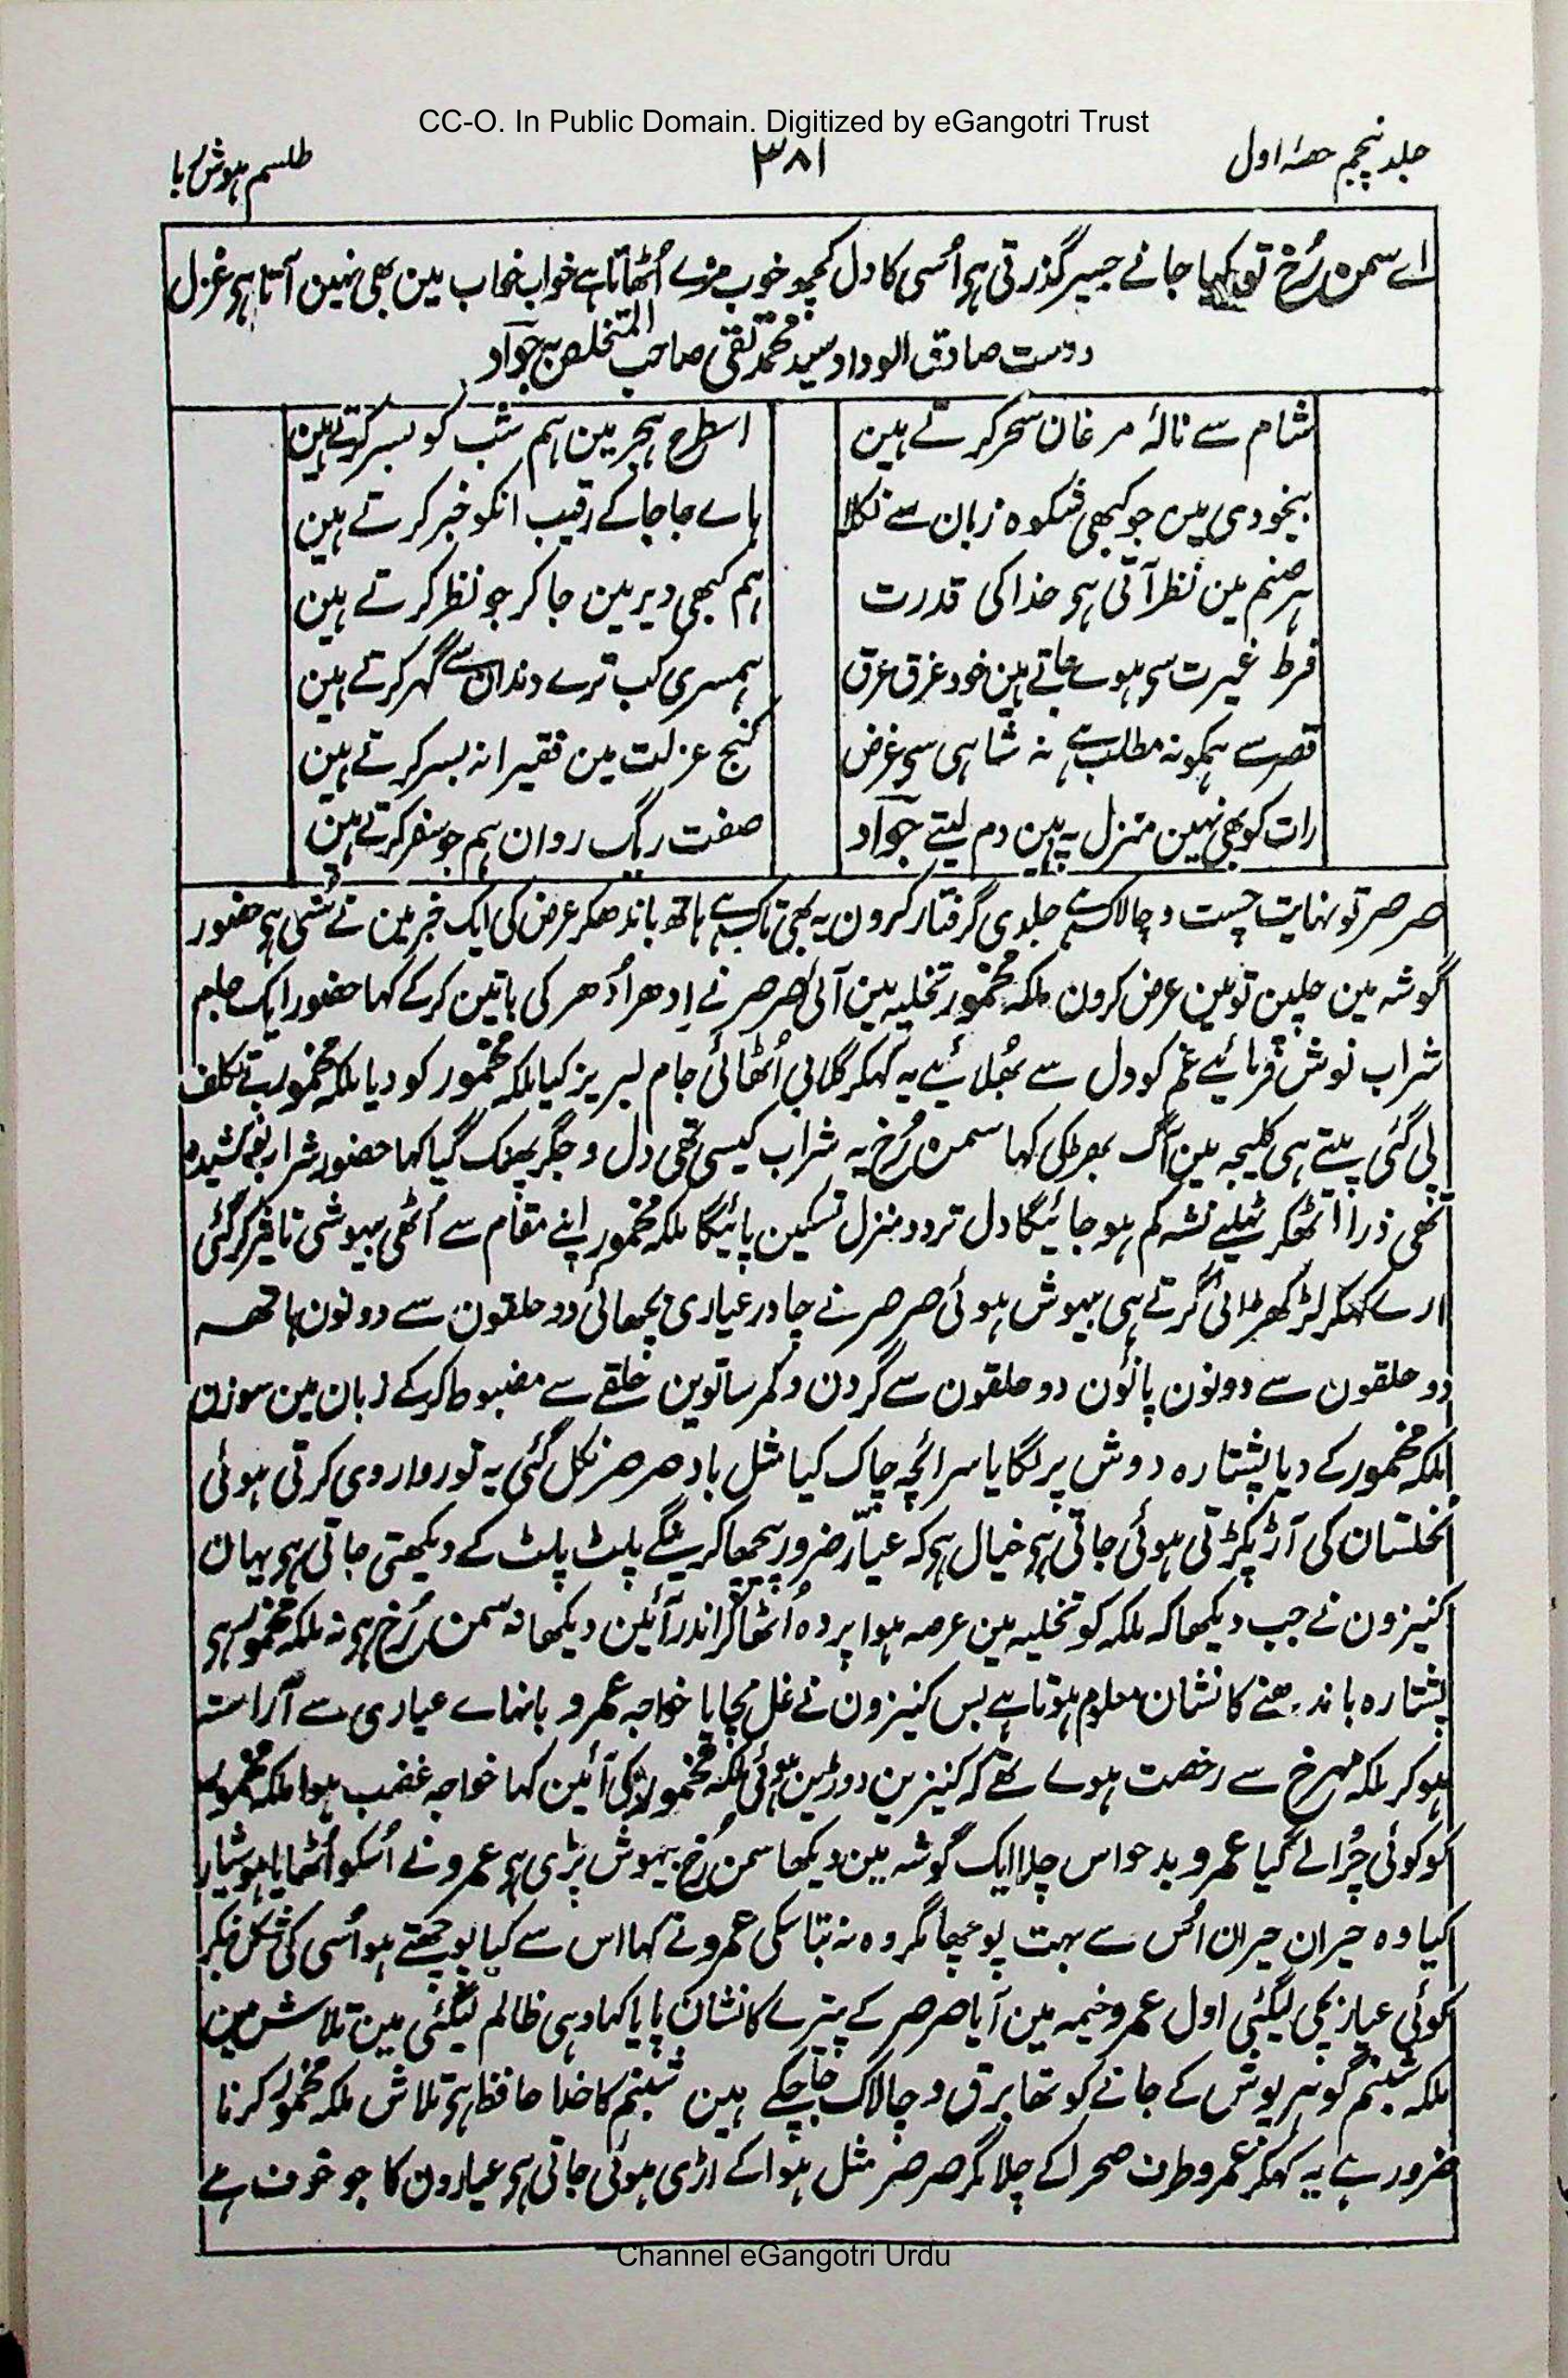 CC-O. In Public Domain. Digitized by eGangotri Trust
جلد پنجم حصۂ اول
۳۸۱
طلسم ہوش ربا
اے سمن رُخ تو کیا جانے جسپر گذرتی ہی اُسی کا دل کچھ خوب مزے اُٹھاتا ہے خواب میں بھی نہین آتا ہی غزل
دوست صادق الوداد سید محمد تقی صاحب المتخلص بہ جوآد
شام سے نالۂ مرغان سحر کرتے ہین
اسطرح ہجر مین ہم شب کو بسر کرتے ہین
بیخودی مین جو کبھی شکوہ زبان سے نکلا
ہاے جا جا کے رقیب انکو خبر کرتے ہین
ہر صنم مین نظر آتی ہی خدا کی قدرت
ہم کبھی دیر مین جا کر جو نظر کرتے ہین
فرط غیرت سی ہوے جاتے ہین خود غرق عرق
ہمسری کب ترے دندان سے گہر کرتے ہین
قصر سے ہمکو نہ مطلب ہے نہ شاہی سی غرض
کنج عزلت مین فقیرانہ بسر کرتے ہین
رات کو بھی نہین منزل پہ ہین دم لیتے جوآد
صفت ریگ روان ہم جو سفر کرتے ہین
صرصر تو نہایت چست و چالاک ہے جلدی گرفتار کرون یہ بھی تاک ہے ہاتھ باندھکر عرض کی ایک خبر مین نے سُنی ہی حضور
گوشہ مین چلین تو مین عرض کرون ملکہ مخمور تخلیہ مین آئی صرصر نے اِدھر اُدھر کی باتین کرکے کہا حضور ایک جام
شراب نوش فرمائیے غم کو دل سے بھُلائیے یہ کہکر گلابی اُٹھائی جام لبریز کیا ملکہ مخمور کو دیا ملکہ مخمور بے تکلف
پی گئی پیتے ہی کلیجہ مین آگ بھڑکی کہا سمن رُخ یہ شراب کیسی تھی دل و جگر پھنک گیا کہا حضور شراب نو کشیدہ
تھی ذرا اُٹھکر ٹہلیے نشہ کم ہو جائیگا دل تردد منزل تسکین پائیگا ملکہ مخمور اپنے مقام سے اُٹھی بیہوشی تاثیر کر گئی
ارے کہکر لڑکھڑائی گرتے ہی بیہوش ہوئی صرصر نے چادر عیاری بچھائی دو حلقون سے دونون ہاتھ
دو حلقون سے دونون پانوُن دو حلقون سے گردن و کمر ساتوین حلقے سے مضبوط کرکے زبان مین سوزن
ملکہ مخمور کے دیا پشتارہ دوش پر لگایا سرائچہ چاک کیا مثل باد صرصر نکل گئی یہ تو روا روی کرتی ہوئی
نخلستان کی آڑ پکڑتی ہوئی جاتی ہی خیال ہی کہ عیار ضرور پیچھا کرینگے پلٹ پلٹ کے دیکھتی جاتی ہی یہان
کنیزون نے جب دیکھا کہ ملکہ کو تخلیہ مین عرصہ ہوا پردہ اُٹھا کر اندر آئین دیکھا نہ سمن رُخ ہی نہ ملکہ مخمور ہی
پشتارہ باندھنے کا نشان معلوم ہوتا ہے بس کنیزون نے غل مچایا خواجہ عمرو بانہاے عیاری سے آراستہ
ہو کر ملکہ مہرخ سے رخصت ہوے تھے کہ کنیزین دوڑین ہوئی ملکہ مخمور کی آئین کہا خواجہ غضب ہوا ملکہ مخمور
کو کوئی چُرا لے گیا عمرو بدحواس چلا ایک گوشہ مین دیکھا سمن رُخ بیہوش پڑی ہی عمرو نے اُسکو اُٹھایا ہوشیار
کیا وہ حیران حیران اُس سے بہت پوچھا مگر وہ نہ بتا سکی عمرو نے کہا اس سے کیا پوچھتے ہو اُسی کی شکل بنکر
کوئی عیار بچی لیگئی اول عمرو خیمہ مین آیا صرصر کے پیترے کا نشان پایا کہا وہی ظالم لیگئی مین تلاش مین
ملکہ شبنم گوہر پوش کے جانے کو تھا برق و چالاک جا چکے ہین شبنم کا خدا حافظ ہی تلاش ملکہ مخمور کرنا
ضرور ہے یہ کہکر عمرو طرف صحرا کے چلا مگر صرصر مثل ہوا کے اڑی ہوئی جاتی ہی عیارون کا جو خوف ہے
Channel eGangotri Urdu